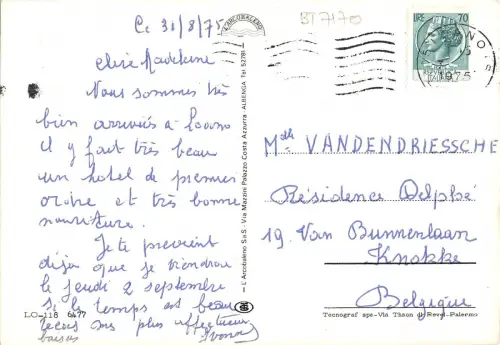 Ce 31/8/75
BT7170
Chère Madeleine
Nous sommes très
bien arrivées à Loano
il y fait très beau
un hotel de premier
ordre et très bonne
nourriture.
Je te previent
déjà que je viendrai
le jeudi 2 septembre
si le temps est beau
reçois mes plus affectueux
baisers Yvonne
L'ARCOBALENO
— L'Arcobaleno SaS - Via Mazzini Palazzo Costa Azzurra - ALBENGA Tel 52781
LO-118 6477
LIRE 70
1975
Melle VANDENDRIESSCHE
Résidence Delphé
19. Van Bunnenlaan
Knokke
Belgique
Tecnograf spa - Via Thaon di Revel - Palermo